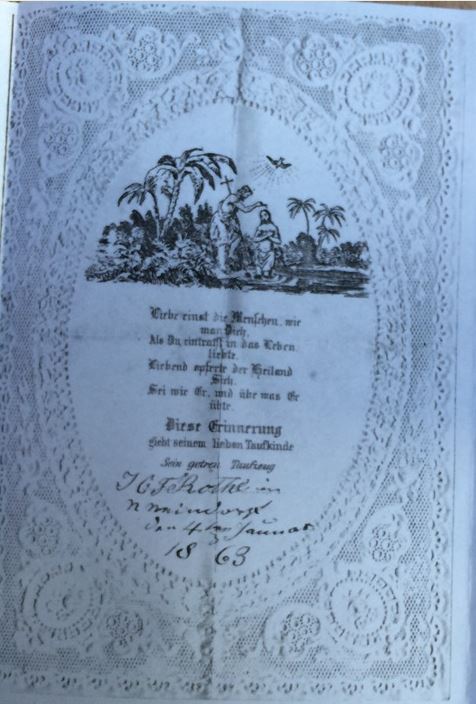 Liebe einst die Menschen, wie
man Dich,
Als Du eintratst in das Leben
liebte.
Liebend opferte der Heiland
Sich.
Sei wie Er, und übe was Er
übte.
Diese Erinnerung
giebt seinem lieben Taufkinde
Sein getreu Taufzeug
J C F Rothe in
den 4ten Januar
1863